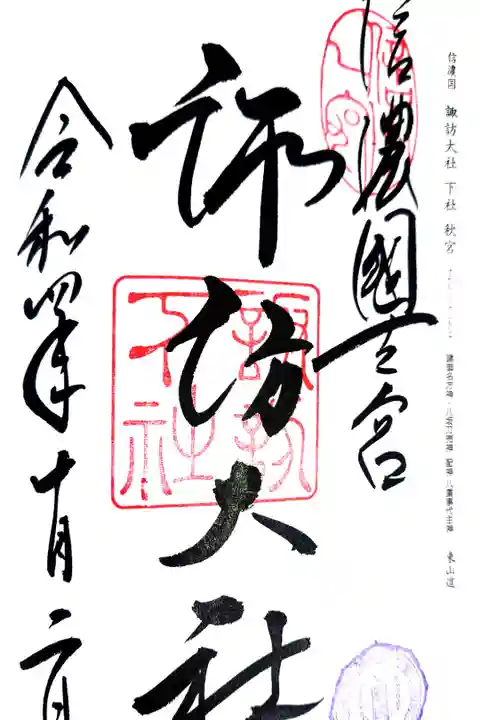 信濃国 諏訪大社 下社 秋宮 建御名方神・八坂刀売神 配神 八重事代主神 東山道
信濃國一之宮
諏訪大社
諏訪
下社
令和四年十月二日